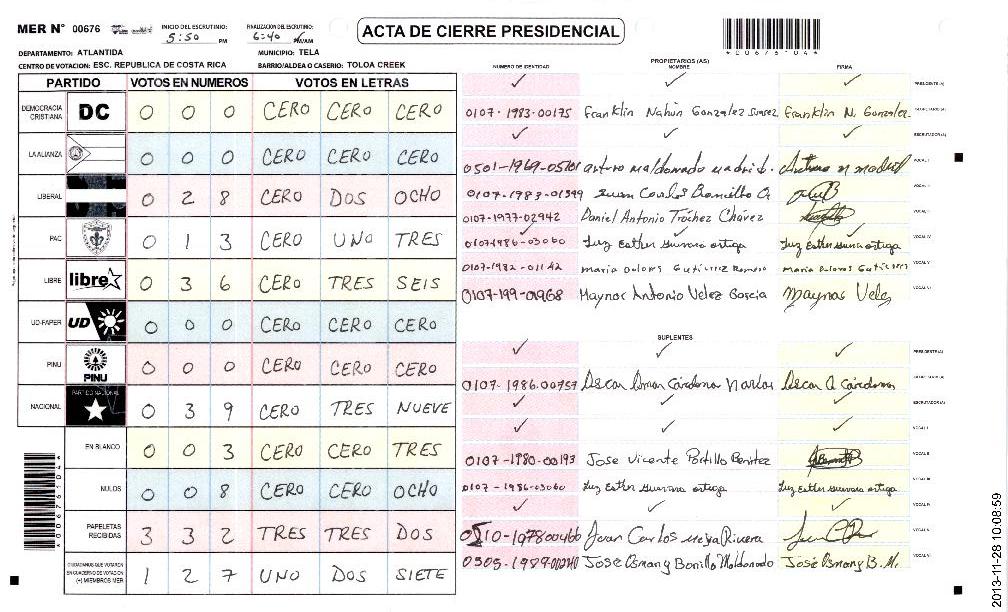 MER Nº 00676
INICIO DEL ESCRUTINIO: 5:50 PM
FINALIZACIÓN DEL ESCRUTINIO: 6:40 PM/AM
ACTA DE CIERRE PRESIDENCIAL
*00676104*
DEPARTAMENTO: ATLANTIDA
MUNICIPIO: TELA
CENTRO DE VOTACION: ESC. REPUBLICA DE COSTA RICA
BARRIO/ALDEA O CASERIO: TOLOA CREEK
PARTIDO VOTOS EN NUMEROS VOTOS EN LETRAS
DEMOCRACIA CRISTIANA DC 0 0 0 CERO CERO CERO
LA ALIANZA 0 0 0 CERO CERO CERO
LIBERAL 0 2 8 CERO DOS OCHO
PAC 0 1 3 CERO UNO TRES
LIBRE libre 0 3 6 CERO TRES SEIS
UD-FAPER UD 0 0 0 CERO CERO CERO
PINU PINU 0 0 0 CERO CERO CERO
NACIONAL PARTIDO NACIONAL 0 3 9 CERO TRES NUEVE
EN BLANCO 0 0 3 CERO CERO TRES
NULOS 0 0 8 CERO CERO OCHO
PAPELETAS RECIBIDAS 3 3 2 TRES TRES DOS
CIUDADANOS QUE VOTARON EN CUADERNO DE VOTACION (+) MIEMBROS MER 1 2 7 UNO DOS SIETE
*00676104*
PROPIETARIOS (AS)
NUMERO DE IDENTIDAD NOMBRE FIRMA
PRESIDENTE (A)
0107-1983-00175 Franklin Nahún Gonzalez Suarez Franklin N. Gonzalez SECRETARIO (A)
ESCRUTADOR (A)
arturo maldonado madrid. VOCAL I
0107-1983-01599 Juan Carlos VOCAL II
0107-1977-02942 Daniel Antonio Tróchez Chávez VOCAL III
0107-1986-03060 Luz Esther Guevara ortega Luz Esther Guevara ortega VOCAL IV
0107-1982-01142 maria Dolores Gutierrez Romero Maria Dolores Gutierrez VOCAL V
0107-199-01968 Maynor Antonio Velez Garcia Maynor Velez VOCAL VI
SUPLENTES
PRESIDENTE (A)
0107-1986-00757 Oscar Omar Cárdona Oscar O Cárdona SECRETARIO (A)
ESCRUTADOR (A)
VOCAL I
0107-1980-00193 Jose Vicente Portillo Benitez VOCAL II
0107-1986-03060 Luz Esther Guevara ortega Luz Esther Guevara ortega VOCAL III
VOCAL IV
Juan Carlos Mejia Rivera VOCAL V
Jose Osmany Bonilla Maldonado Jose Osmany B. M. VOCAL VI
2013-11-28 10:08:59